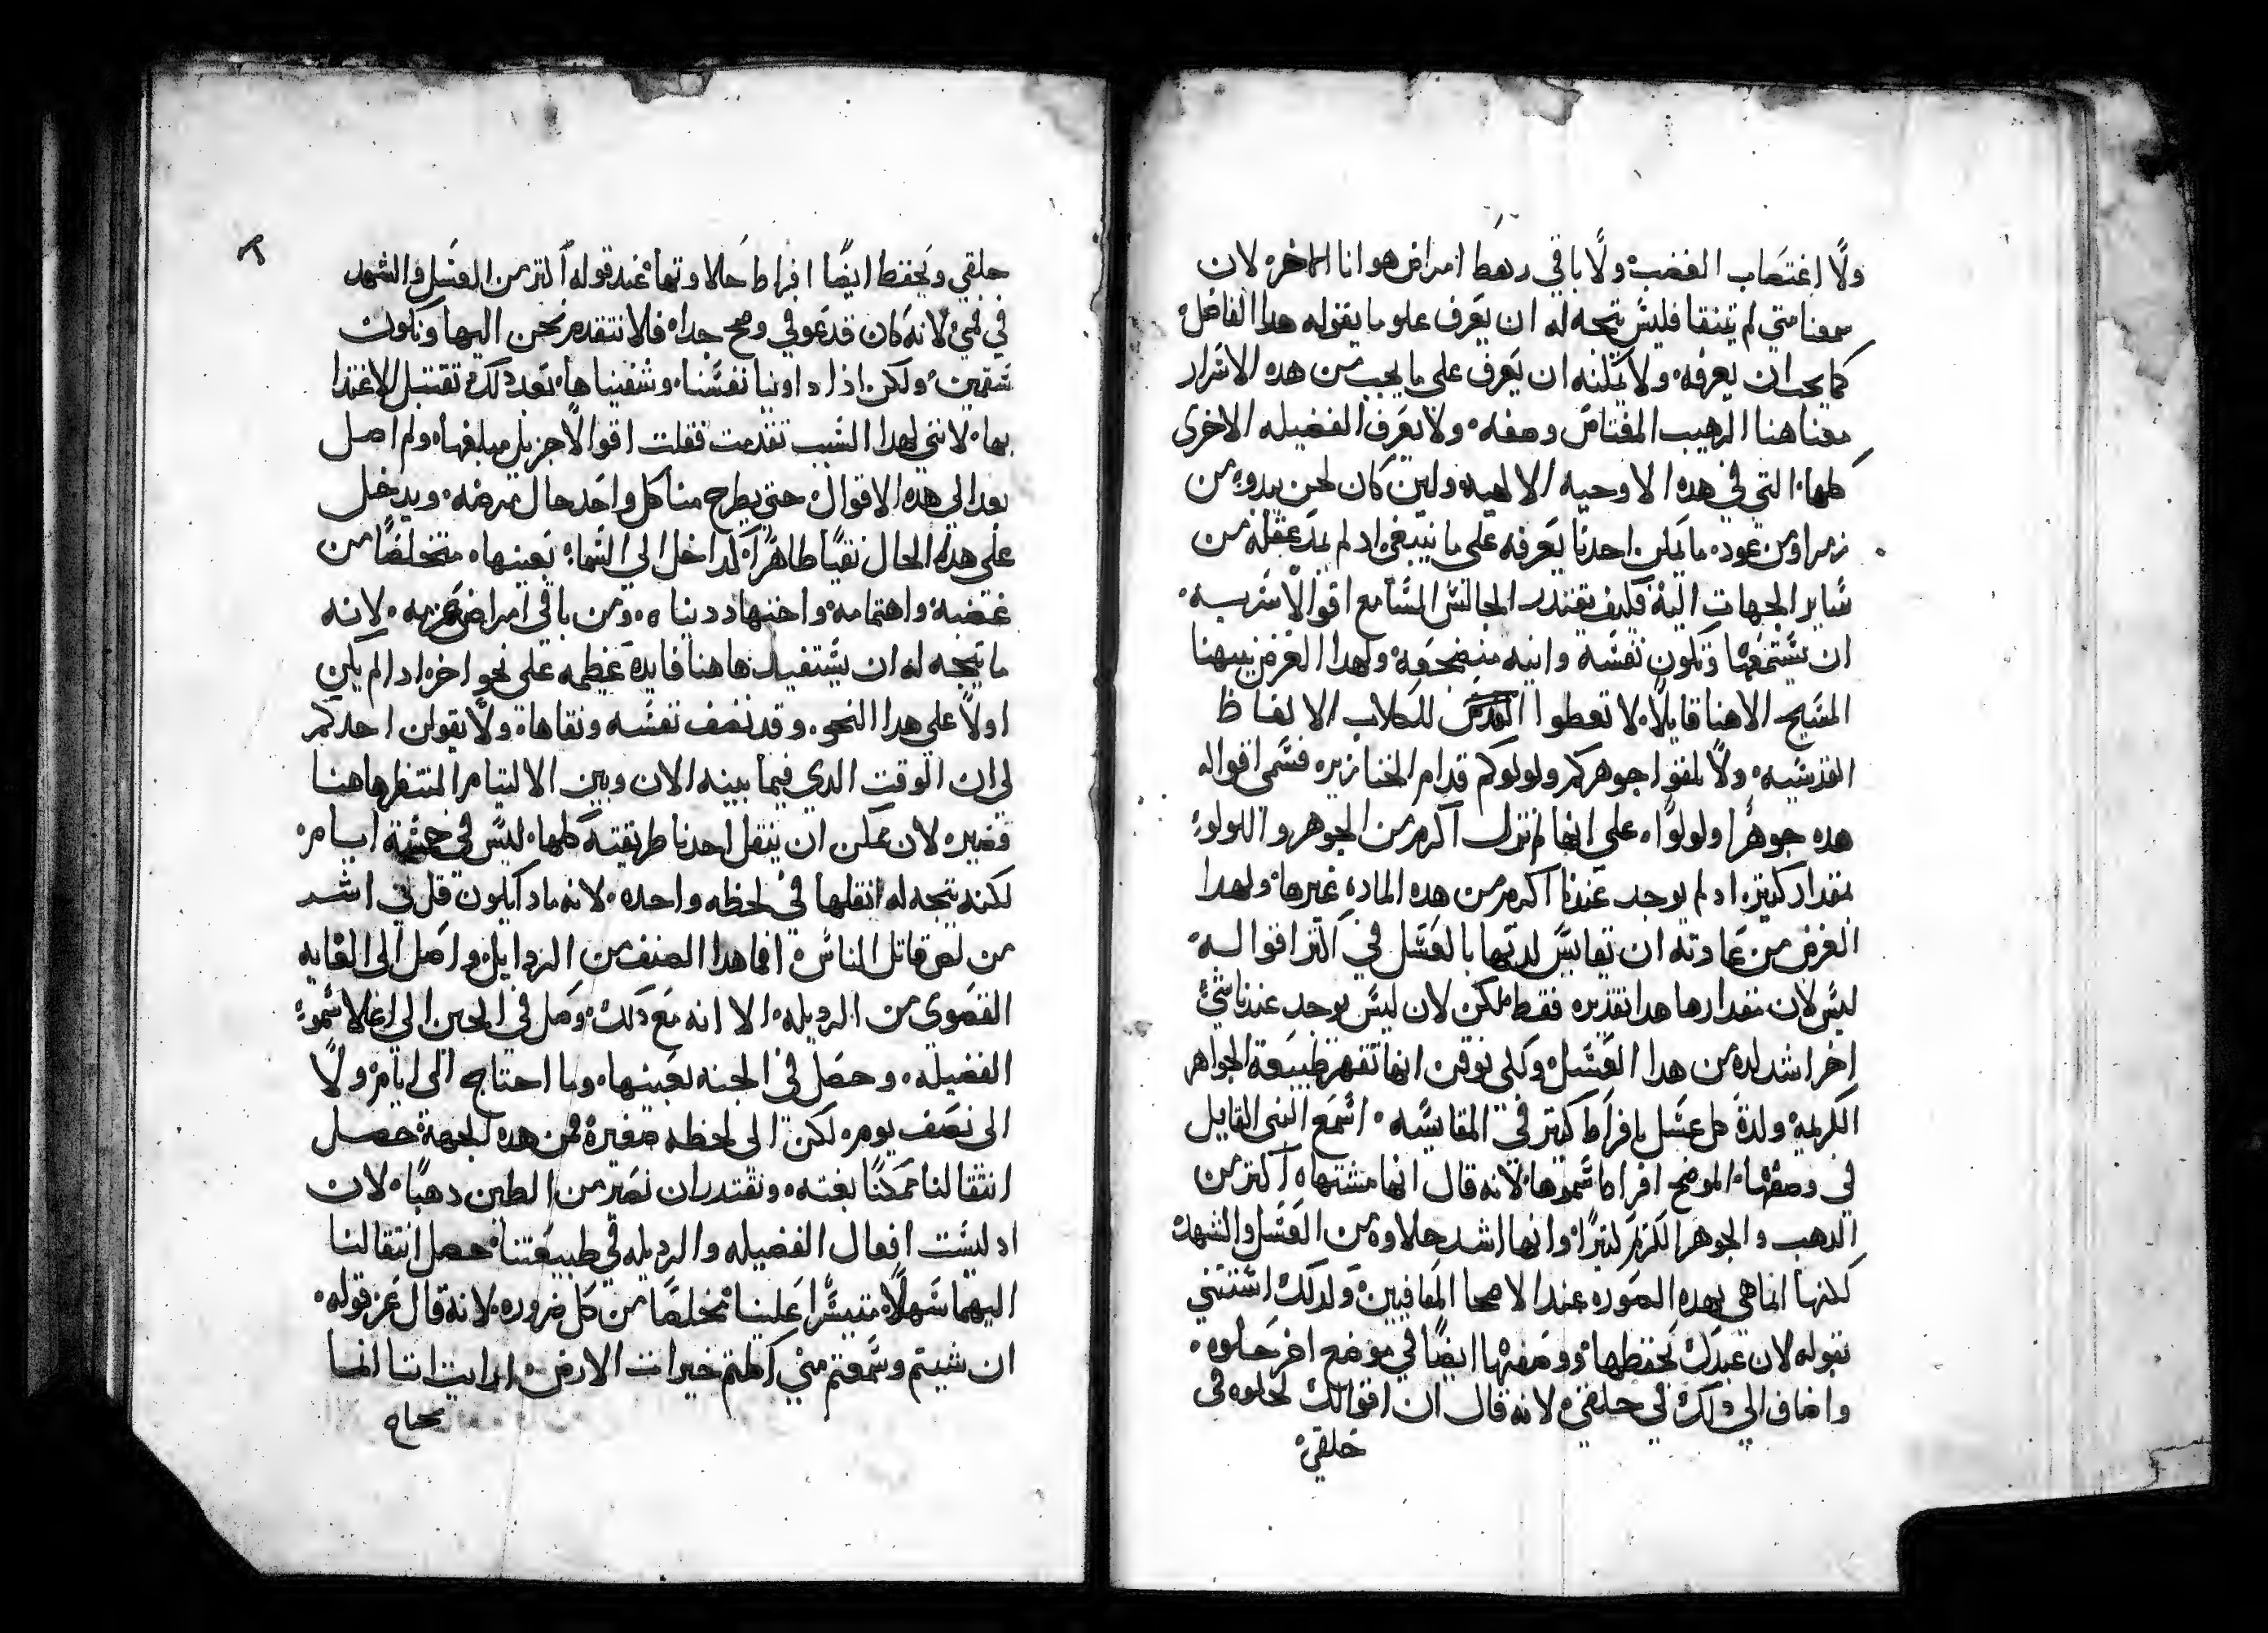 ولا اغتصاب الغضب ولا باقي رهط امراض هوانا الاخر لان
سمعنا متى لم يتنقا فليس يتجه له ان يعرف علو ما يقوله هدا الفاضل
كما يجب ان يعرفه ولا يمكنه ان يعرف على ما يجب من هده الاسرار
معناها الرهيب المعتاص وصفه ولا يعرف الفضيله الاخرى
كلها التي في هده الاوحيه الالهيه ولين كان لحن يبدوه من
زمر او من عود ما يمكن احدنا يعرفه على ما ينبغي اد لم يمد عقله من
ساير الجهات اليه فكيف يقتدر الجالس المسامع اقوالا سريه
ان يستمعها وتكون نفسه وانيه منضجعه ولهدا الغرض ينبهنا
المسيح الاهنا قايلا لا تعطوا القدس للكلاب الالفاظ
القديسيه ولا تلقوا جوهركم ولولوكم قدام الخنازير فسمى اقواله
هده جوهرا ولولوا على انها لم تزل اكرم من الجوهر واللولو
مقدار كثير اد لم يوجد عندنا اكرم من هده الماده غيرها ولهدا
الغرض من عادته ان تقايس لدتها بالعسل في اكتر اقواله
ليس لان مقدارها هدا تقديره فقط لكن لان ليس يوجد عندنا شي
اخر اشد لده من هدا العسل ولكي نوقن انها تقهر طبيعة الجواهر
الكريمه ولدة كل عسل بافراط كتير في المقايسه اسمع النبي القايل
في وصفها الموضح افراط سموها لانه قال انها مشتهاه اكتر من
الدهب والجوهر الكريم كتيرا وانها اشد حلاوه من العسل والشهد
لكنها انما هي بهده الصوره عند الاصحا المعافيين ولدلك استتنى
بقوله لان عبدك يحفظها ووصفها ايضا في موضع اخر حلوه
واضاف الى دلك في حلقي لانه قال ان اقوالك لحلوه في
حلقي
حلقي ويحفظ ايضا افراط حلاوتها عند قوله اكتر من العسل والشهد
في فمي لانه كان قد عوفي وصح جدا فلا نتقدم نحن اليها ونكون
سقمين ولكن اذا داوينا نفسنا وشفيناها بعد دلك نقتبل الاغتدا
بها لانني لهدا السبب تقدمت فقلت اقوالا جزيل مبلغها ولم اصل
بعد الى هده الاقوال حتى يطرح منا كل واحد حال مرضه ويدخل
على هده الحال نقيا طاهرا كداخل الى السما بعينها متخلصا من
غضبه واهتمامه واختهاد دنياه ومن باقي امراض عزمه لانه
ما يتجه له ان يستفيد هاهنا فايده عظيمه على نحو اخر ادا لم يكن
اولا على هدا النحو وقد نضف نفسه ونقاها ولا يقولن احدكم
لي ان الوقت الدي فيما بينه الان وبين الالتيام المنتظر هاهنا
قصير لان يمكن ان ينقل احدنا طريقته كلها ليس في خمسة ايام
لكنه يتجه له انقلها في لحظه واحده لانه مادا يكون قل لي اشر
من لص قاتل الناس افما هدا الصنف من الردايل واصل الى الغايه
القصوى من الرديله الا انه مع دلك وصل في الحين الى اعلا سمو
الفضيله وحصل في الجنه بعينها وما احتاج الى ايام ولا
الى نصف يوم لكن الى لحظه صغيره فمن هده الجهة حصل
انتقالنا ممكنا بغته ونقتدر ان نصير من الطين دهبا لان
اد ليست افعال الفضيله والرديله في طبيعتنا حصل انتقالنا
اليهما سهلا متيسرا علينا متخلصا من كل ضروره لانه قال عز قوله
ان شيتم وسمعتم مني اكلتم خيرات الارض ارايت اننا انما
نحتاج